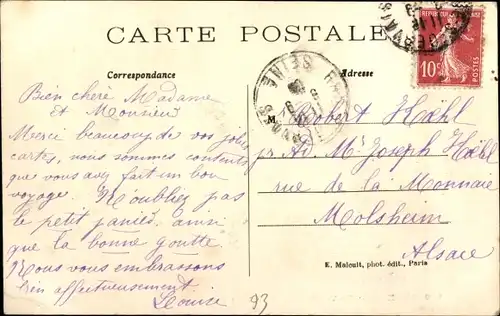 CARTE POSTALE
Correspondance
Adresse
10c
POSTES
SEINE
Bien chère Madame
et Monsieur
Merci beaucoup de vos jolies
cartes, nous sommes contents
que vous avez fait un bon
voyage. N'oubliez pas
le petit panier ainsi
que la bonne goutte
Nous vous embrassons
bien affectueusement
Louise
93
M Robert Hähl
pr. Ad. Mr Joseph Hähl
rue de la Monnaie
Molsheim
Alsace
E. Malcuit, phot. édit., Paris